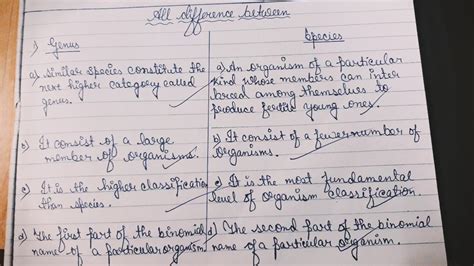 All difference between
1) Genus
a) Similar species constitute the
next higher category called
genus.
b) It consist of a large
member of organisms.
c) It is the higher classification
than species.
d) The first part of the binomial
name of a particular organism.
Species
a) An organism of a particular
kind whose members can inter
breed among themselves to
produce fertile young ones.
b) It consist of a fewer number of
organisms.
c) It is the most fundamental
level of organism classification.
d) The second part of the binomial
name of a particular organism.